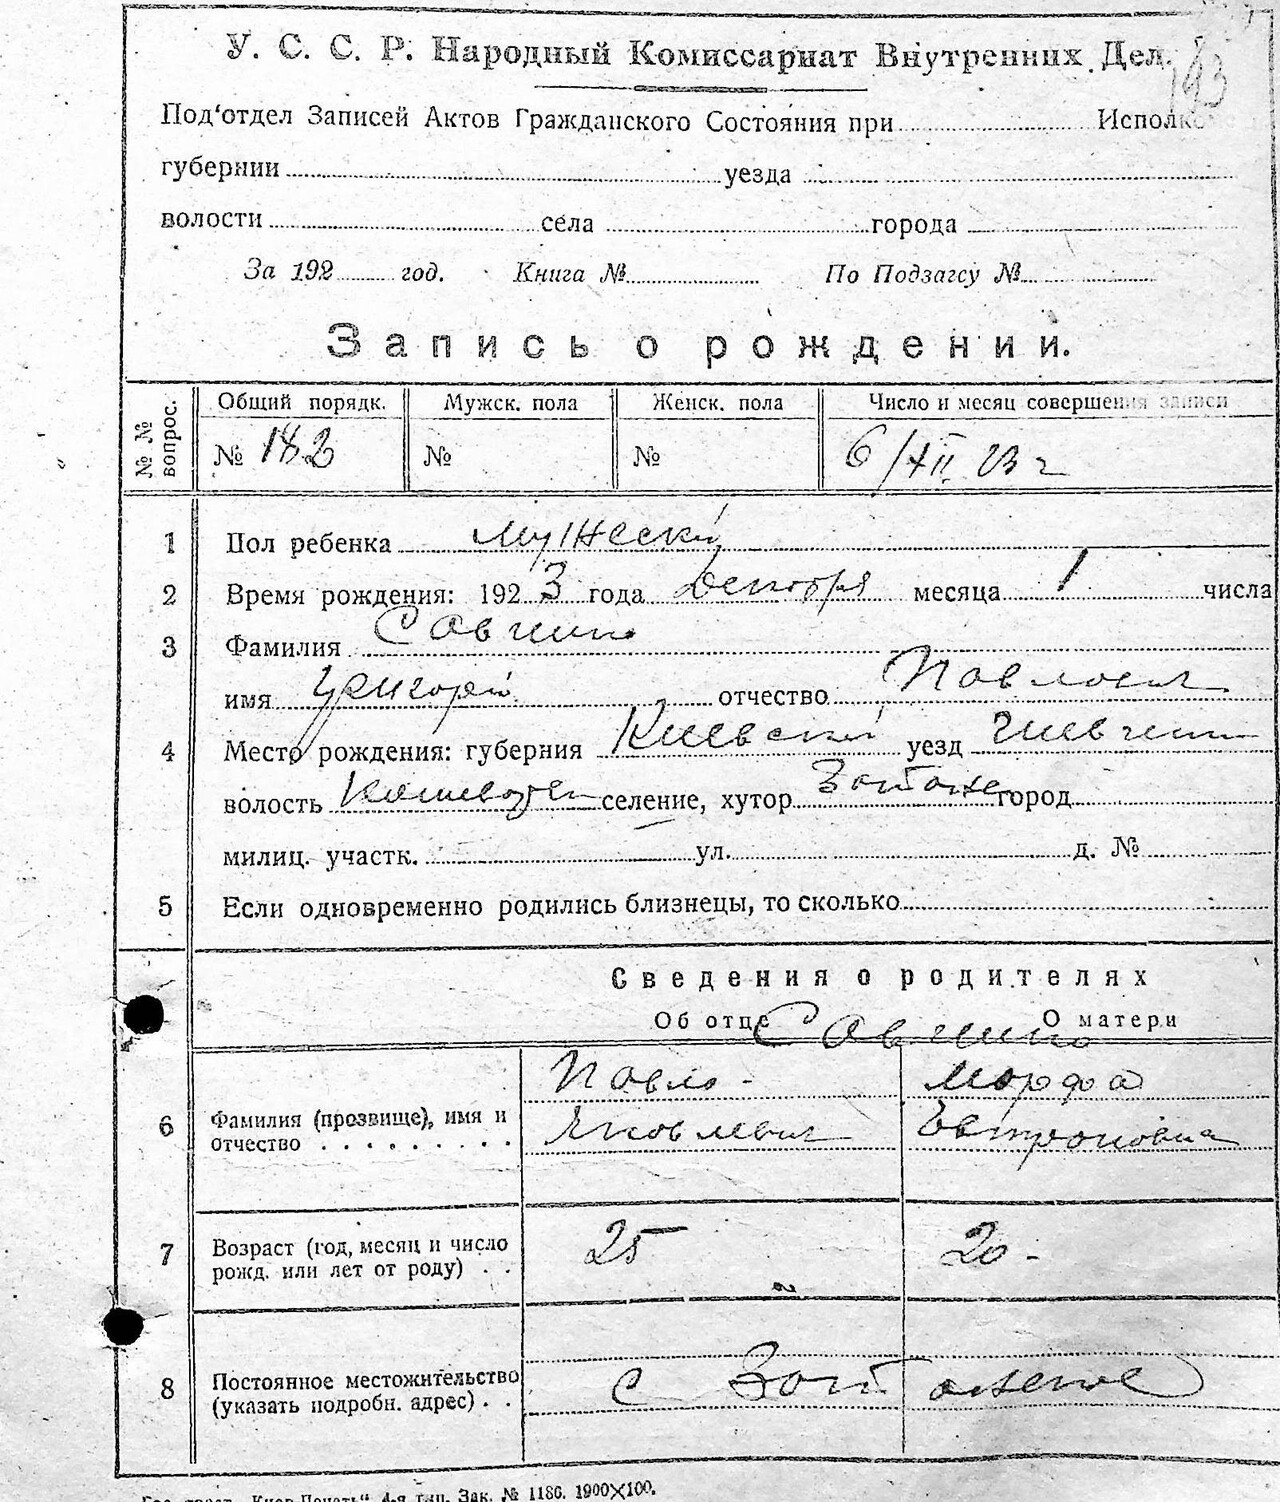 193
У. С. С. Р. Народный Комиссариат Внутренних Дел.
Под'отдел Записей Актов Гражданского Состояния при Исполк
губернии уезда
волости села города
За 192 год. Книга № По Подзагсу №
Запись о рождении.
№ № вопрос. Общий порядк. Мужск. пола Женск. пола Число и месяц совершения записи
№ 182 № № 6/XII 23 г
1 Пол ребенка мужеский
2 Время рождения: 192 3 года Декабря месяца 1 числа
3 Фамилия Савченко
имя Григорий отчество Павлович
4 Место рождения: губерния Киевский уезд
волость селение, хутор город
милиц. участк. ул. д. №
5 Если одновременно родились близнецы, то сколько
Сведения о родителях
Об отце О матери
Савченко
6 Фамилия (прозвище), имя и отчество Павло - Яковлевич Марфа
7 Возраст (год, месяц и число рожд. или лет от роду) 25 20 -
8 Постоянное местожительство (указать подробн. адрес) с
Киев-Печать" 4-я тип. Зак. № 1186. 1900×100.